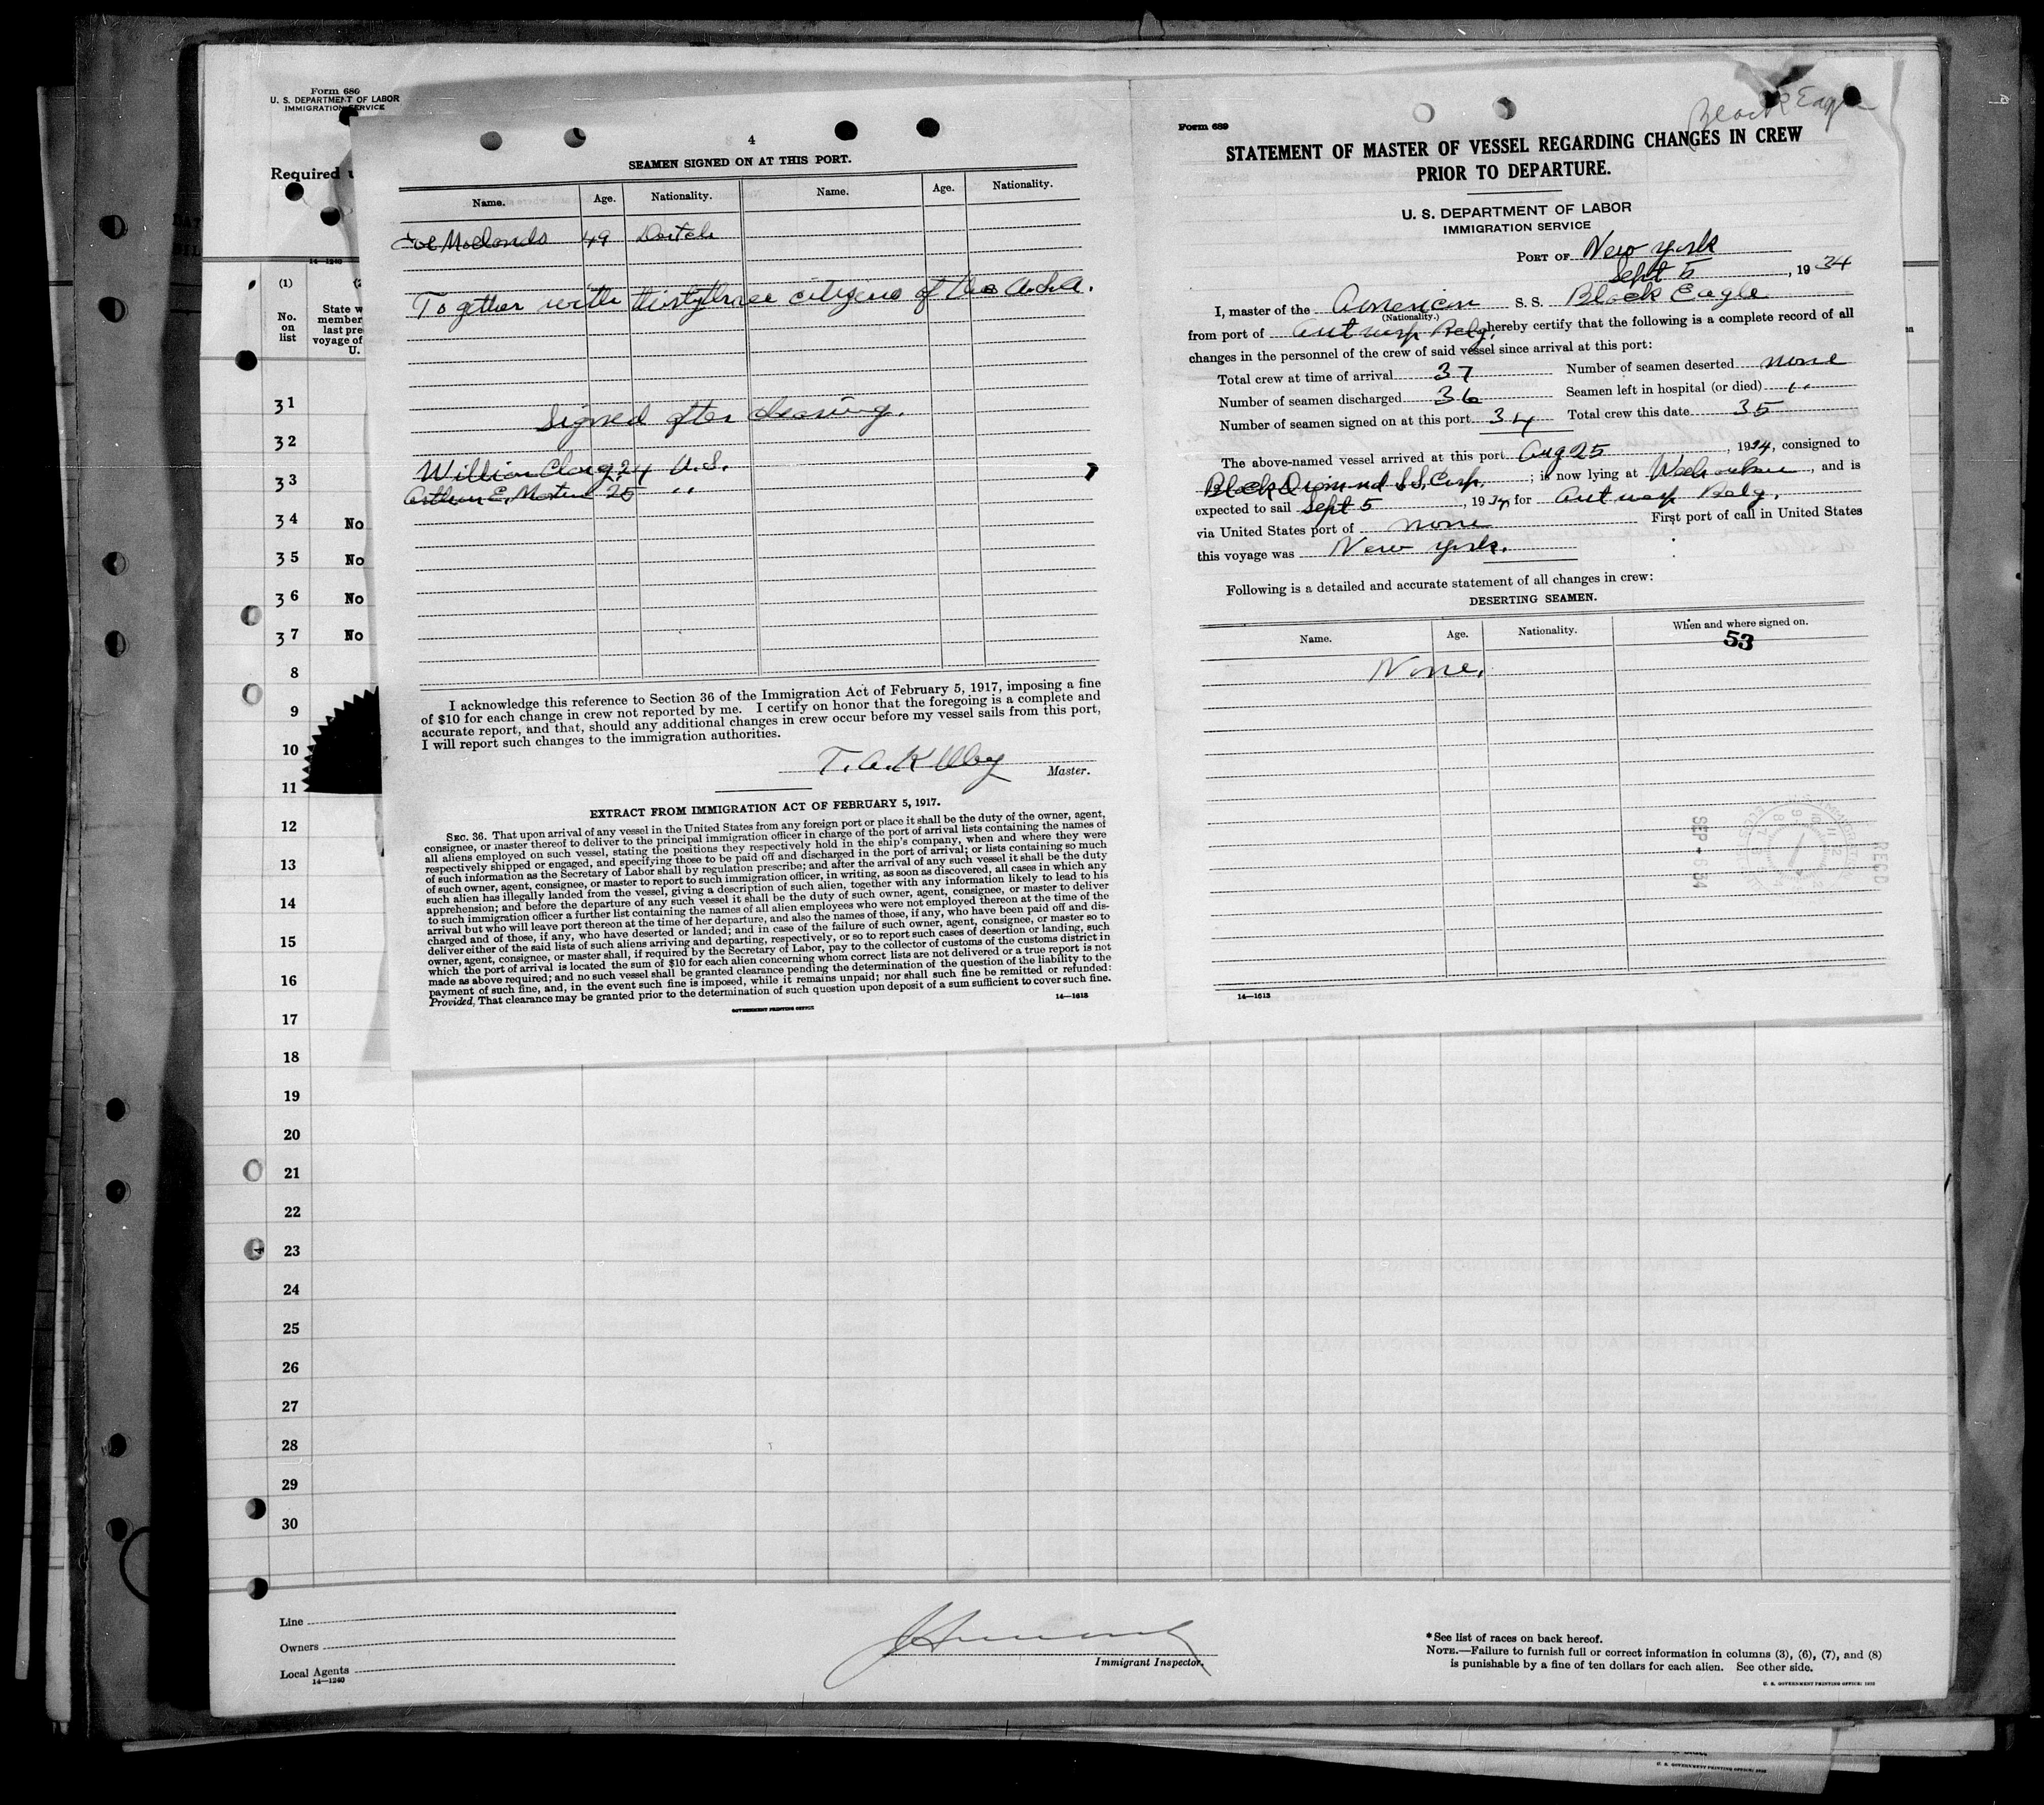 Form 680
U. S. DEPARTMENT OF LABOR
IMMIGRATION SERVICE
Required
(1)
No.
on
list
State w
member
last pre
voyage of
U.
14—1240
31
32
33
34 No
35 No
36 No
37 No
8
9
10
11
12
13
14
15
16
17
18
19
20
21
22
23
24
25
26
27
28
29
30
Line
Owners
Local Agents
14—1240
Immigrant Inspector.
*See list of races on back hereof.
NOTE.—Failure to furnish full or correct information in columns (3), (6), (7), and (8)
is punishable by a fine of ten dollars for each alien. See other side.
U. S. GOVERNMENT PRINTING OFFICE: 1932
4
SEAMEN SIGNED ON AT THIS PORT.
Name. Age. Nationality. Name. Age. Nationality.
49 Dutch
Together with thirtythree citizens of the U.S.A.
Signed after clearing.
William 24 U.S.
Arthur E. 25 "
I acknowledge this reference to Section 36 of the Immigration Act of February 5, 1917, imposing a fine
of $10 for each change in crew not reported by me. I certify on honor that the foregoing is a complete and
accurate report, and that, should any additional changes in crew occur before my vessel sails from this port,
I will report such changes to the immigration authorities.
T. A. Master.
EXTRACT FROM IMMIGRATION ACT OF FEBRUARY 5, 1917.
SEC. 36. That upon arrival of any vessel in the United States from any foreign port or place it shall be the duty of the owner, agent,
consignee, or master thereof to deliver to the principal immigration officer in charge of the port of arrival lists containing the names of
all aliens employed on such vessel, stating the positions they respectively hold in the ship's company, when and where they were
respectively shipped or engaged, and specifying those to be paid off and discharged in the port of arrival; or lists containing so much
of such information as the Secretary of Labor shall by regulation prescribe; and after the arrival of any such vessel it shall be the duty
of such owner, agent, consignee, or master to report to such immigration officer, in writing, as soon as discovered, all cases in which any
such alien has illegally landed from the vessel, giving a description of such alien, together with any information likely to lead to his
apprehension; and before the departure of any such vessel it shall be the duty of such owner, agent, consignee, or master to deliver
to such immigration officer a further list containing the names of all alien employees who were not employed thereon at the time of the
arrival but who will leave port thereon at the time of her departure, and also the names of those, if any, who have been paid off and dis-
charged and of those, if any, who have deserted or landed; and in case of the failure of such owner, agent, consignee, or master so to
deliver either of the said lists of such aliens arriving and departing, respectively, or so to report such cases of desertion or landing, such
owner, agent, consignee, or master shall, if required by the Secretary of Labor, pay to the collector of customs of the customs district in
which the port of arrival is located the sum of $10 for each alien concerning whom correct lists are not delivered or a true report is not
made as above required; and no such vessel shall be granted clearance pending the determination of the question of the liability to the
payment of such fine, and, in the event such fine is imposed, while it remains unpaid; nor shall such fine be remitted or refunded:
Provided, That clearance may be granted prior to the determination of such question upon deposit of a sum sufficient to cover such fine.
GOVERNMENT PRINTING OFFICE 14—1613
Black Eagle
Form 689
STATEMENT OF MASTER OF VESSEL REGARDING CHANGES IN CREW
PRIOR TO DEPARTURE.
U. S. DEPARTMENT OF LABOR
IMMIGRATION SERVICE
PORT OF New York
Sept 5, 1934
I, master of the American S. S. Black Eagle
(Nationality.)
from port of Antwerp Belg. hereby certify that the following is a complete record of all
changes in the personnel of the crew of said vessel since arrival at this port:
Total crew at time of arrival 37 Number of seamen deserted none
Number of seamen discharged 36 Seamen left in hospital (or died) "
Number of seamen signed on at this port 34 Total crew this date 35
The above-named vessel arrived at this port Aug 25, 1934, consigned to
Black Diamond S.S. Corp.; is now lying at Weehawken, and is
expected to sail Sept 5, 1934 for Antwerp Belg.
via United States port of none First port of call in United States
this voyage was New York.
Following is a detailed and accurate statement of all changes in crew:
DESERTING SEAMEN.
Name. Age. Nationality. When and where signed on.
53
None.
REC'D
SEP - 6 34
14—1613